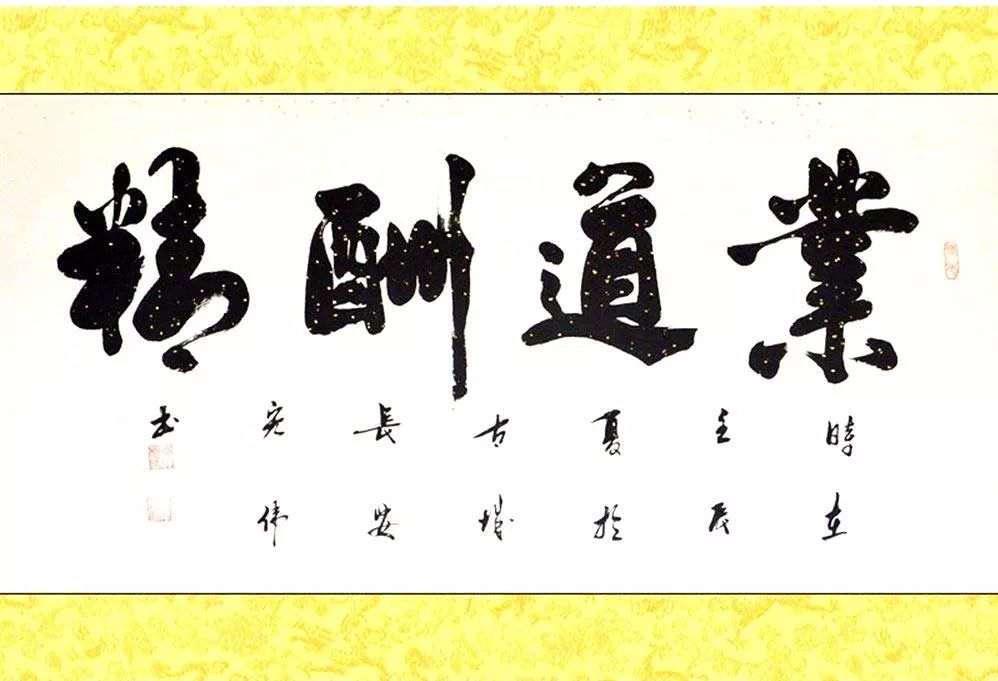 業道酬精
時在
壬辰
夏於
古城
長安
伟
书